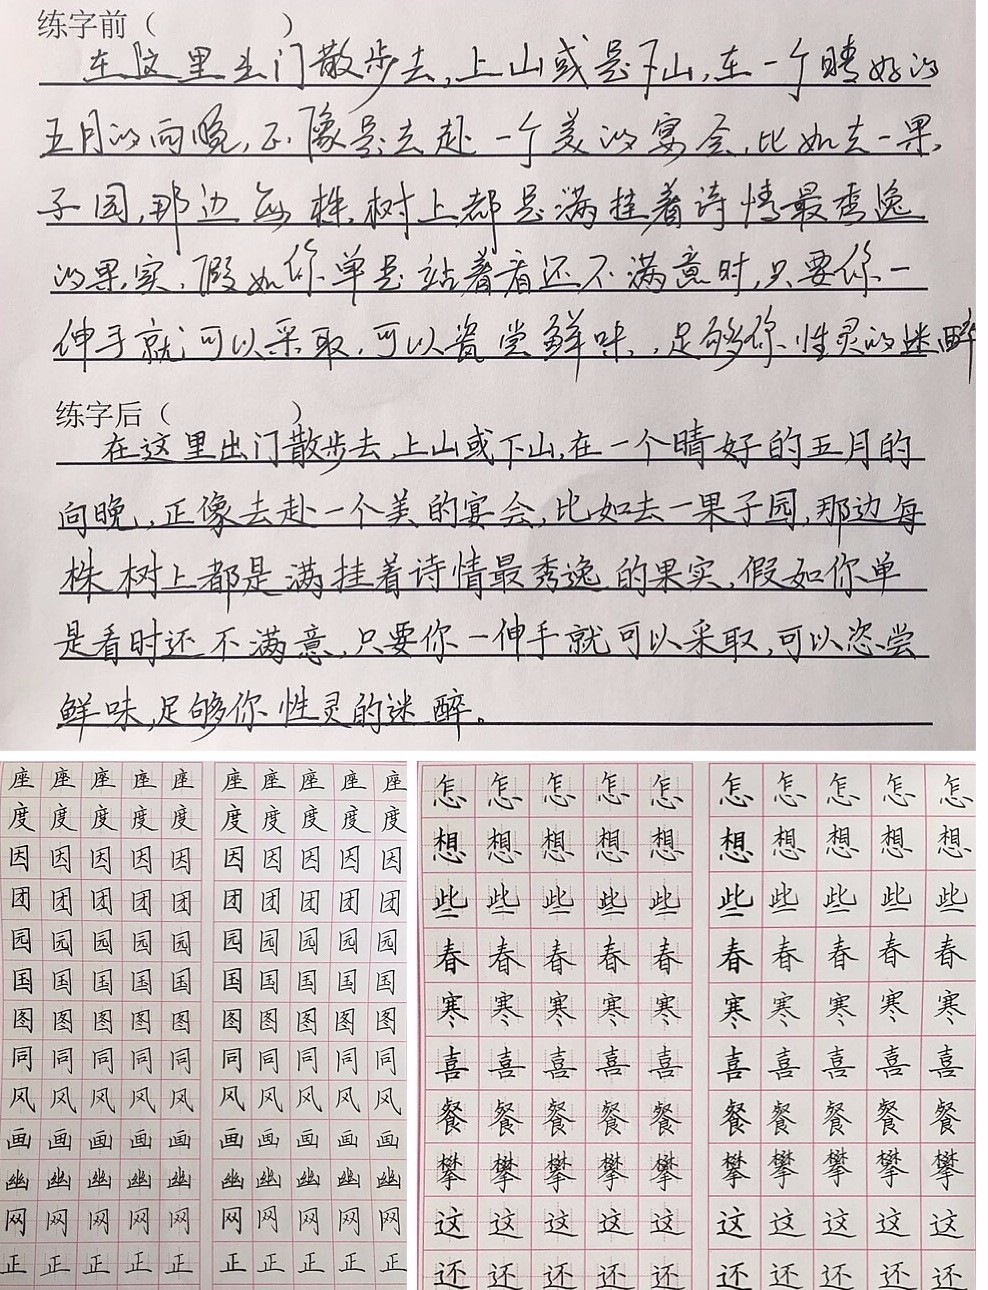 练字前（ ）
在这里出门散步去,上山或是下山,在一个晴好的
五月的向晚,正像是去赴一个美的宴会,比如去一果
子园,那边每株树上都是满挂着诗情最秀逸
的果实,假如你单是站着看还不满意时,只要你一
伸手就可以采取,可以瓷尝鲜味,足够你性灵的迷醉
练字后（ ）
在这里出门散步去,上山或下山,在一个晴好的五月的
向晚,正像去赴一个美的宴会,比如去一果子园,那边每
株树上都是满挂着诗情最秀逸的果实,假如你单
是看时还不满意,只要你一伸手就可以采取,可以恣尝
鲜味,足够你性灵的迷醉。
座座座座座 座座座座座
度度度度度 度度度度度
因因因因因 因因因因因
团团团团团 团团团团团
园园园园园 园园园园园
国国国国国 国国国国国
图图图图图 图图图图图
同同同同同 同同同同同
风风风风风 风风风风风
画画画画画 画画画画画
幽幽幽幽幽 幽幽幽幽幽
网网网网网 网网网网网
正正正正正 正正正正正
怎怎怎怎怎 怎怎怎怎怎
想想想想想 想想想想想
些些些些些 些些些些些
春春春春春 春春春春春
寒寒寒寒寒 寒寒寒寒寒
喜喜喜喜喜 喜喜喜喜喜
餐餐餐餐餐 餐餐餐餐餐
攀攀攀攀攀 攀攀攀攀攀
这这这这这 这这这这这
还还还还还 还还还还还